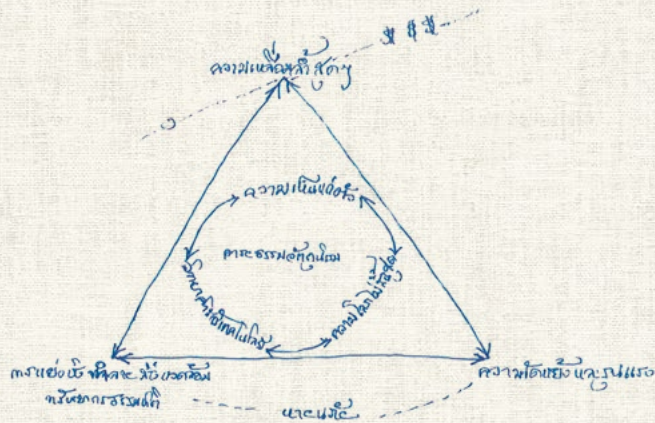 ความเหลื่อมล้ำสุดๆ
ความเห็นแก่ตัว
ภาวะธรรมอัตถนิยม
วิทยาศาสตร์เทคโนโลยี
ความโลภไม่สิ้นสุด
การแย่งชิง ทำลาย สิ่งแวดล้อม
ทรัพยากรธรรมชาติ
ความขัดแย้งและรุนแรง